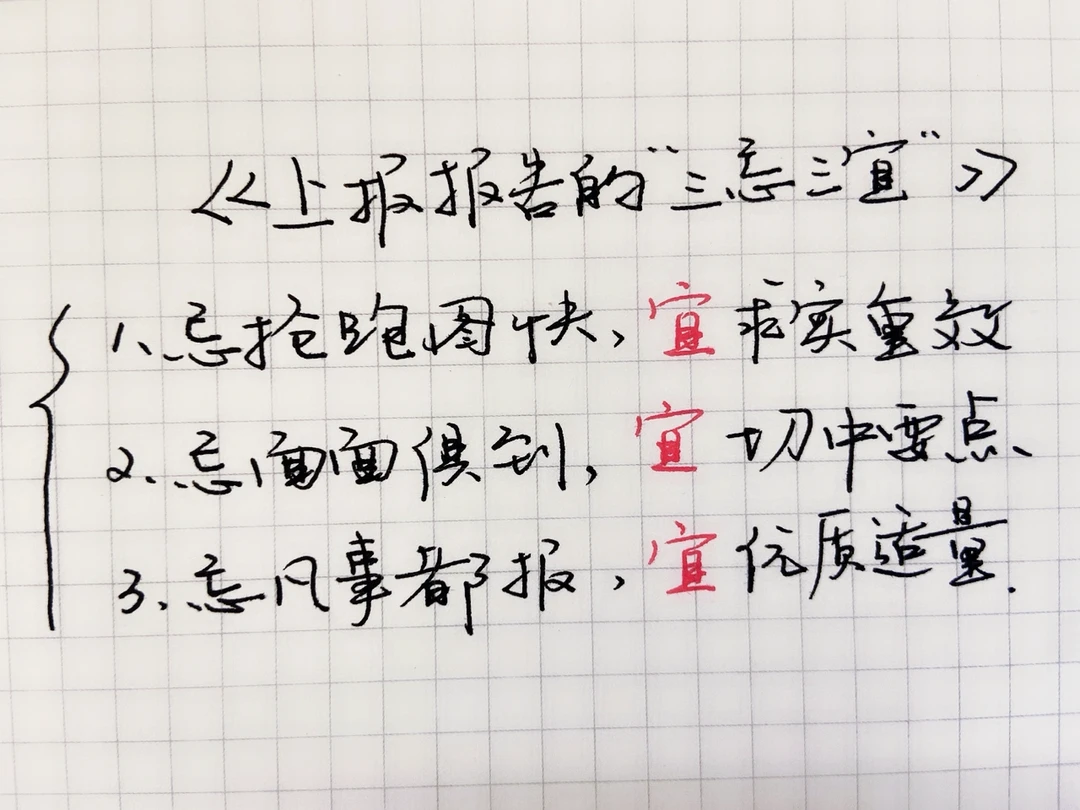 《上报报告的"三忌三宜"》
1、忌抢跑图快，宜求实重效
2、忌面面俱到，宜切中要点、
3、忌凡事都报，宜优质适量.